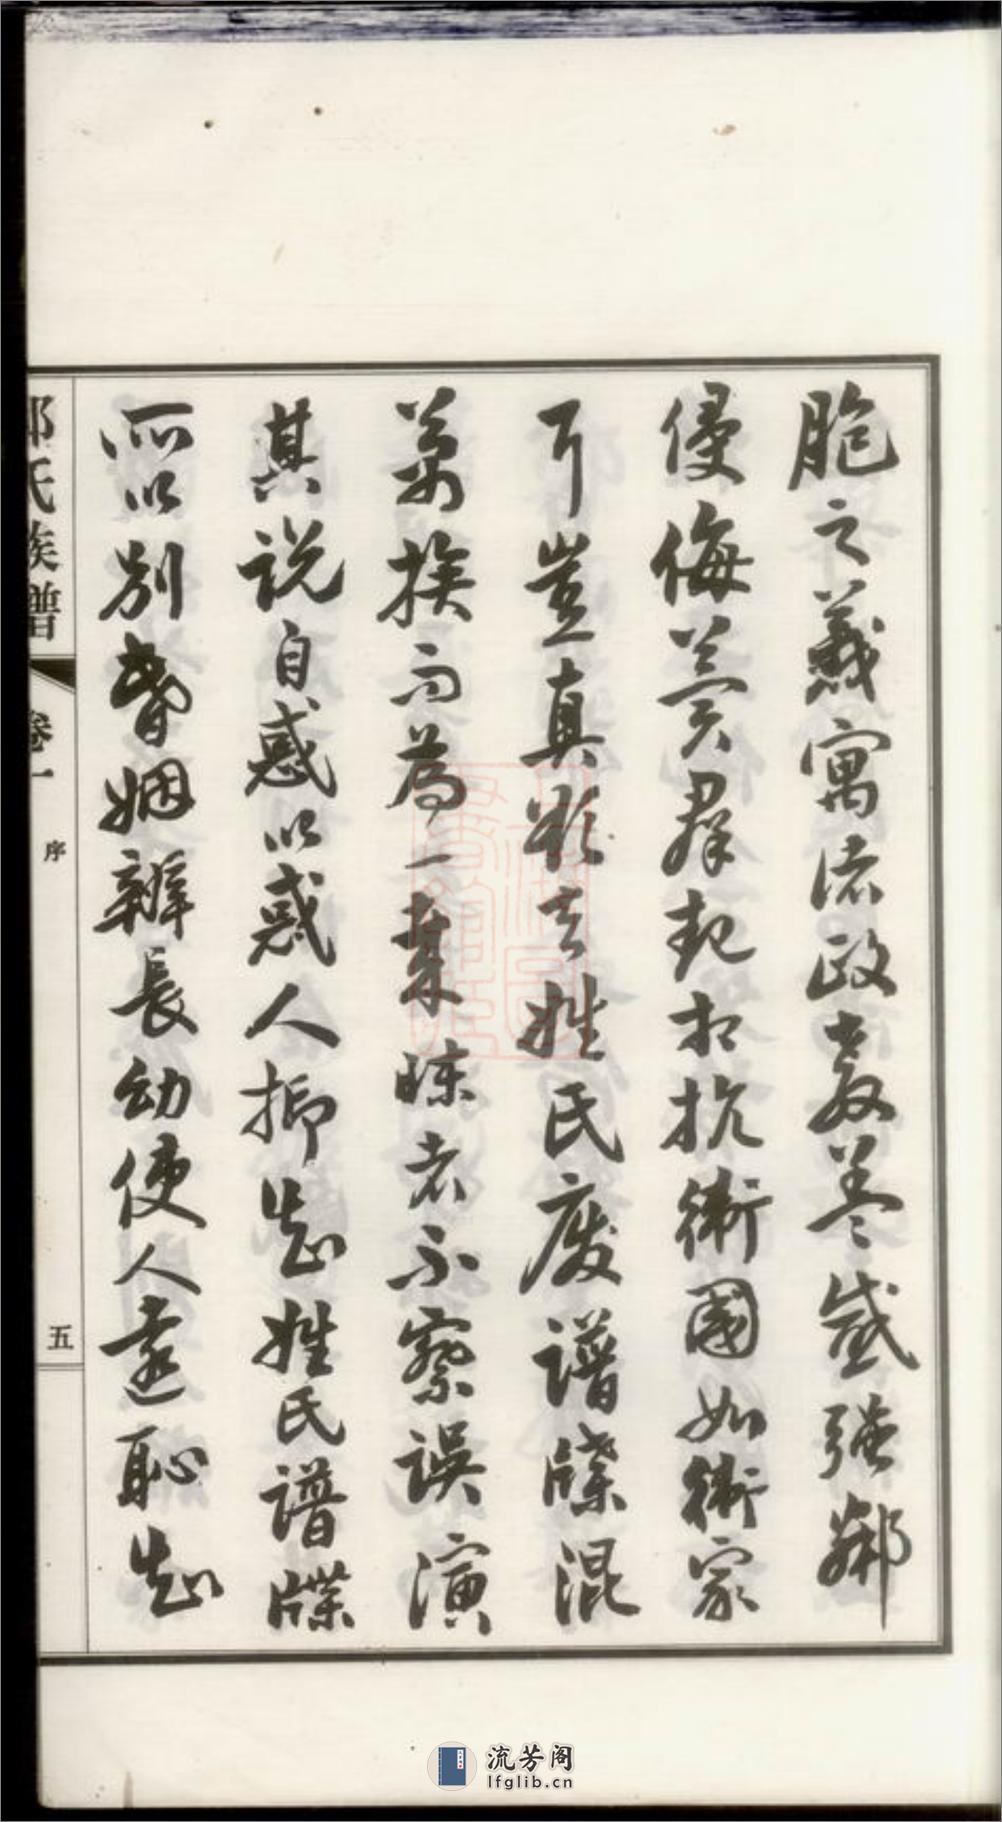 胞之義寓諸政教羊羊感強鄰
侵侮羣群起相抗衛國如衛家
耳豈真欲去姓氏廢譜牒混
萬族而為一葉昧者不察誤演
其說自惑以惑人抑知姓氏譜牒
所以別昏姻辨長幼使人遠恥知
氏族譜
卷一
序
五
流芳阁
lfglib.cn